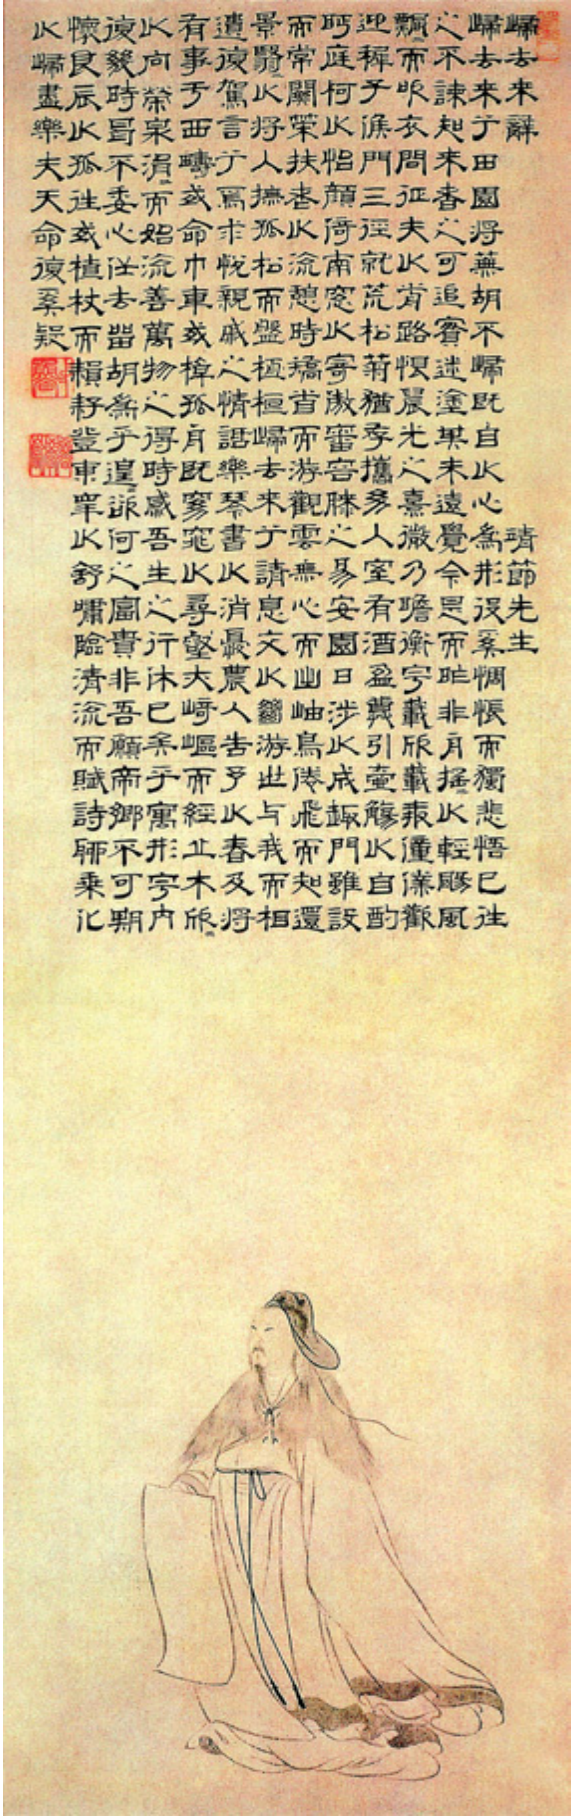 歸去來辭 靖節先生
歸去來兮田園將蕪胡不歸既自以心為形役奚惆悵而獨悲悟已往
之不諫知來者之可追實迷塗其未遠覺今是而昨非舟搖〻以輕颺風
飄〻而吹衣問征夫以前路恨晨光之熹微乃瞻衡宇載欣載奔僮僕歡
迎稚子候門三徑就荒松菊猶存攜幼入室有酒盈罇引壺觴以自酌
眄庭柯以怡顏倚南窓以寄傲審容膝之易安園日涉以成趣門雖設
而常關策扶老以流憩時矯首而游觀雲無心而出岫鳥倦飛而知還
景翳〻以將入撫孤松而盤桓歸去來兮請息交以絕游世与我而相
遺復駕言兮焉求悅親戚之情話樂琴書以消憂農人告予以春及將
有事于西疇或命巾車或棹孤舟既窈窕以尋壑亦崎嶇而經丘木欣〻
以向榮泉涓〻而始流善萬物之得時感吾生之行休已矣乎寓形宇內
復幾時曷不委心任去留胡為乎遑〻欲何之富貴非吾願帝鄉不可期
懷良辰以孤往或植杖而耘耔登東皋以舒嘯臨清流而賦詩聊乘化
以歸盡樂夫天命復奚疑